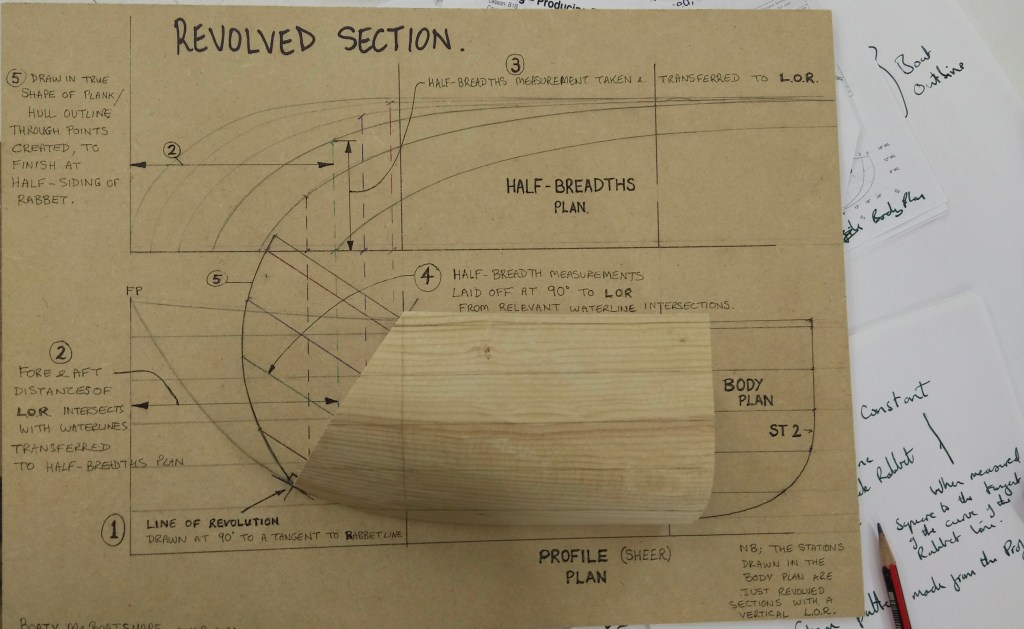 REVOLVED SECTION.
⑤ DRAW IN TRUE
SHAPE OF PLANK/
HULL OUTLINE
THROUGH POINTS
CREATED, TO
FINISH AT
HALF-SIDING OF
RABBET.
③
HALF-BREADTHS MEASUREMENT TAKEN & TRANSFERRED TO L.O.R.
②
HALF-BREADTHS
PLAN.
⑤
④ HALF-BREADTH MEASUREMENTS
LAID OFF AT 90° TO LOR
FROM RELEVANT WATERLINE INTERSECTIONS.
FP
②
FORE & AFT
DISTANCES OF
L.O.R INTERSECTS
WITH WATERLINES
TRANSFERRED
TO HALF-BREADTHS PLAN
BODY
PLAN
ST 2
① LINE OF REVOLUTION
DRAWN AT 90° TO A TANGENT TO RABBET LINE
PROFILE (SHEER)
PLAN
NB; THE STATIONS
DRAWN IN THE
BODY PLAN ARE
JUST REVOLVED
SECTIONS WITH A
VERTICAL L.O.R.
Boat
Outline
Body Plan
Constant
Rabbet
When measured
Square to the tangent
of the curve of the
Rabbet line.
made from the